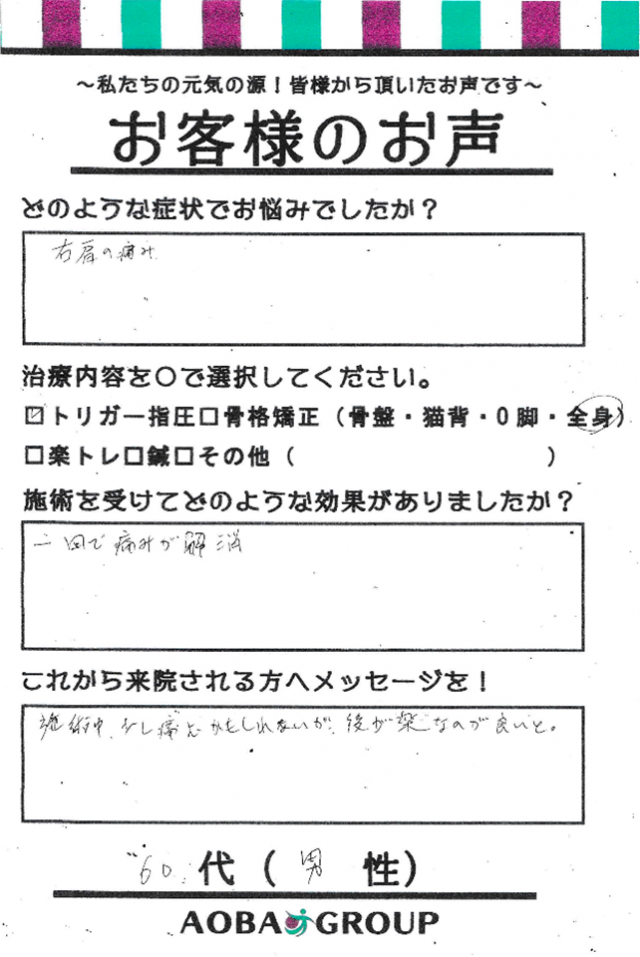 ～私たちの元気の源！皆様から頂いたお声です～
お客様のお声
どのような症状でお悩みでしたか？
右肩の痛み
治療内容を○で選択してください。
☑トリガー指圧□骨格矯正（骨盤・猫背・O脚・全身）
□楽トレ□鍼□その他（　　　　　　　　　　）
施術を受けてどのような効果がありましたか？
二回で痛みが解消
これから来院される方へメッセージを！
施術中、少し痛むかもしれないが、後が楽なのが良いと。
60代（男　性）
AOBA GROUP